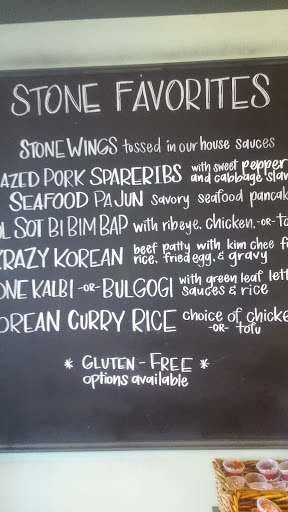 STONE FAVORITES
STONE WINGS tossed in our house sauces
AZED PORK SPARERIBS with sweet pepper
and cabbage slaw
SEAFOOD PAJUN savory seafood pancak
OL SOT BI BIM BAP with ribeye, chicken, -or- to
KRAZY KOREAN beef patty with kim chee f
rice, fried egg, & gravy
ONE KALBI -OR- BULGOGI with green leaf lett
sauces & rice
OREAN CURRY RICE choice of chicke
-OR- tofu
* GLUTEN-FREE *
options available